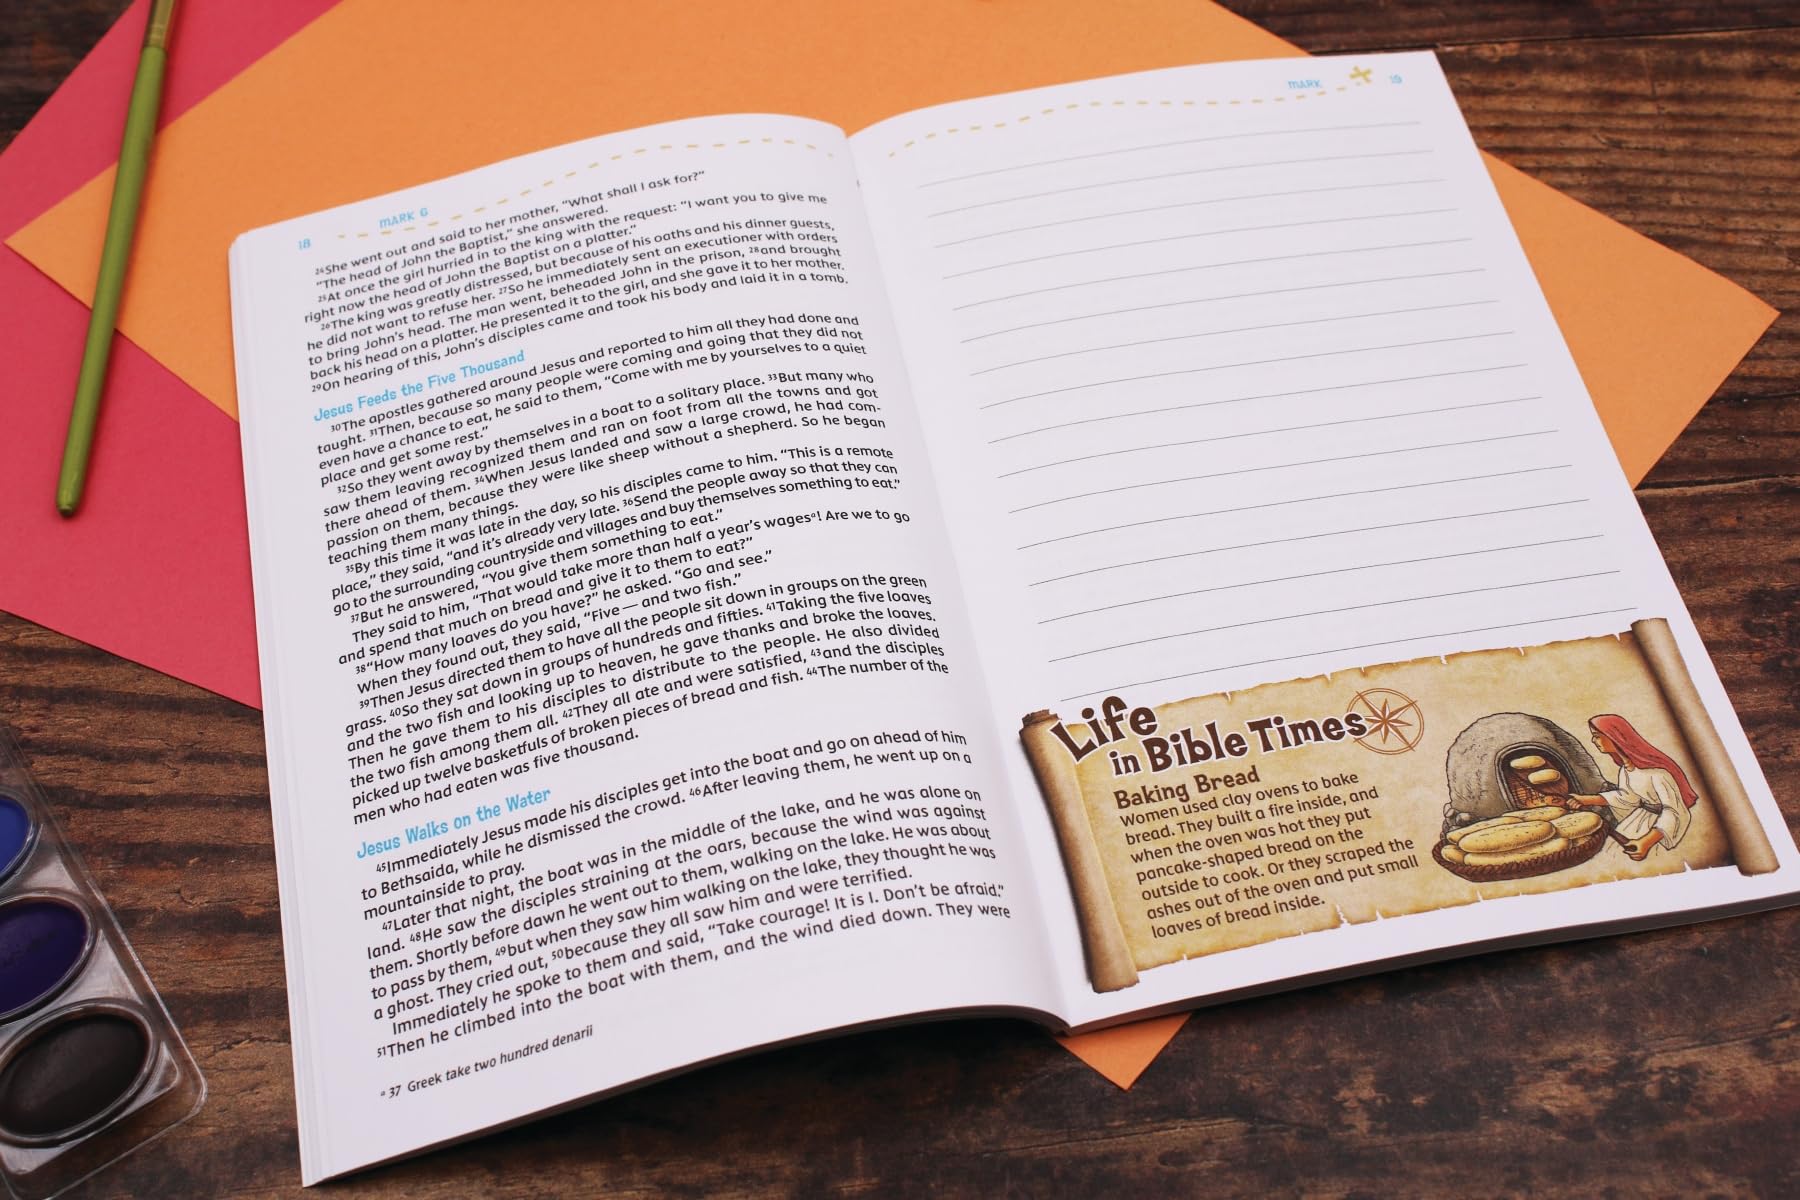 18 MARK 6
²⁴She went out and said to her mother, “What shall I ask for?”
“The head of John the Baptist,” she answered.
²⁵At once the girl hurried in to the king with the request: “I want you to give me
right now the head of John the Baptist on a platter.”
²⁶The king was greatly distressed, but because of his oaths and his dinner guests,
he did not want to refuse her. ²⁷So he immediately sent an executioner with orders
to bring John’s head. The man went, beheaded John in the prison, ²⁸and brought
back his head on a platter. He presented it to the girl, and she gave it to her mother.
²⁹On hearing of this, John’s disciples came and took his body and laid it in a tomb.
Jesus Feeds the Five Thousand
³⁰The apostles gathered around Jesus and reported to him all they had done and
taught. ³¹Then, because so many people were coming and going that they did not
even have a chance to eat, he said to them, “Come with me by yourselves to a quiet
place and get some rest.”
³²So they went away by themselves in a boat to a solitary place. ³³But many who
saw them leaving recognized them and ran on foot from all the towns and got
there ahead of them. ³⁴When Jesus landed and saw a large crowd, he had com-
passion on them, because they were like sheep without a shepherd. So he began
teaching them many things.
³⁵By this time it was late in the day, so his disciples came to him. “This is a remote
place,” they said, “and it’s already very late. ³⁶Send the people away so that they can
go to the surrounding countryside and villages and buy themselves something to eat.”
³⁷But he answered, “You give them something to eat.”
They said to him, “That would take more than half a year’s wagesᵃ! Are we to go
and spend that much on bread and give it to them to eat?”
³⁸“How many loaves do you have?” he asked. “Go and see.”
When they found out, they said, “Five — and two fish.”
³⁹Then Jesus directed them to have all the people sit down in groups on the green
grass. ⁴⁰So they sat down in groups of hundreds and fifties. ⁴¹Taking the five loaves
and the two fish and looking up to heaven, he gave thanks and broke the loaves.
Then he gave them to his disciples to distribute to the people. He also divided
the two fish among them all. ⁴²They all ate and were satisfied, ⁴³and the disciples
picked up twelve basketfuls of broken pieces of bread and fish. ⁴⁴The number of the
men who had eaten was five thousand.
Jesus Walks on the Water
⁴⁵Immediately Jesus made his disciples get into the boat and go on ahead of him
to Bethsaida, while he dismissed the crowd. ⁴⁶After leaving them, he went up on a
mountainside to pray.
⁴⁷Later that night, the boat was in the middle of the lake, and he was alone on
land. ⁴⁸He saw the disciples straining at the oars, because the wind was against
them. Shortly before dawn he went out to them, walking on the lake. He was about
to pass by them, ⁴⁹but when they saw him walking on the lake, they thought he was
a ghost. They cried out, ⁵⁰because they all saw him and were terrified.
Immediately he spoke to them and said, “Take courage! It is I. Don’t be afraid.”
⁵¹Then he climbed into the boat with them, and the wind died down. They were
ᵃ 37 Greek take two hundred denarii
MARK 19
Life
in Bible Times
Baking Bread
Women used clay ovens to bake
bread. They built a fire inside, and
when the oven was hot they put
pancake-shaped bread on the
outside to cook. Or they scraped the
ashes out of the oven and put small
loaves of bread inside.